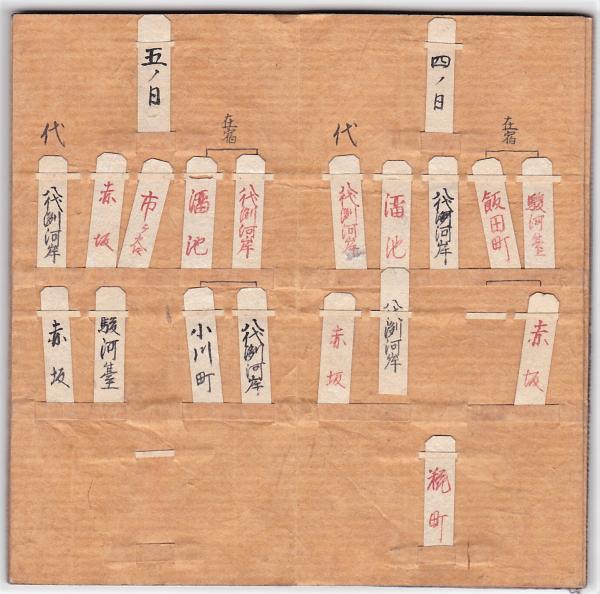 四ノ日
在宿
代
駿河臺
飯田町
八代洲河岸
溜池
八代洲河岸
赤坂
八代洲河岸
赤坂
糀町
五ノ日
在宿
代
八代洲河岸
溜池
市ヶ谷
赤坂
八代洲河岸
八代洲河岸
小川町
駿河臺
赤坂